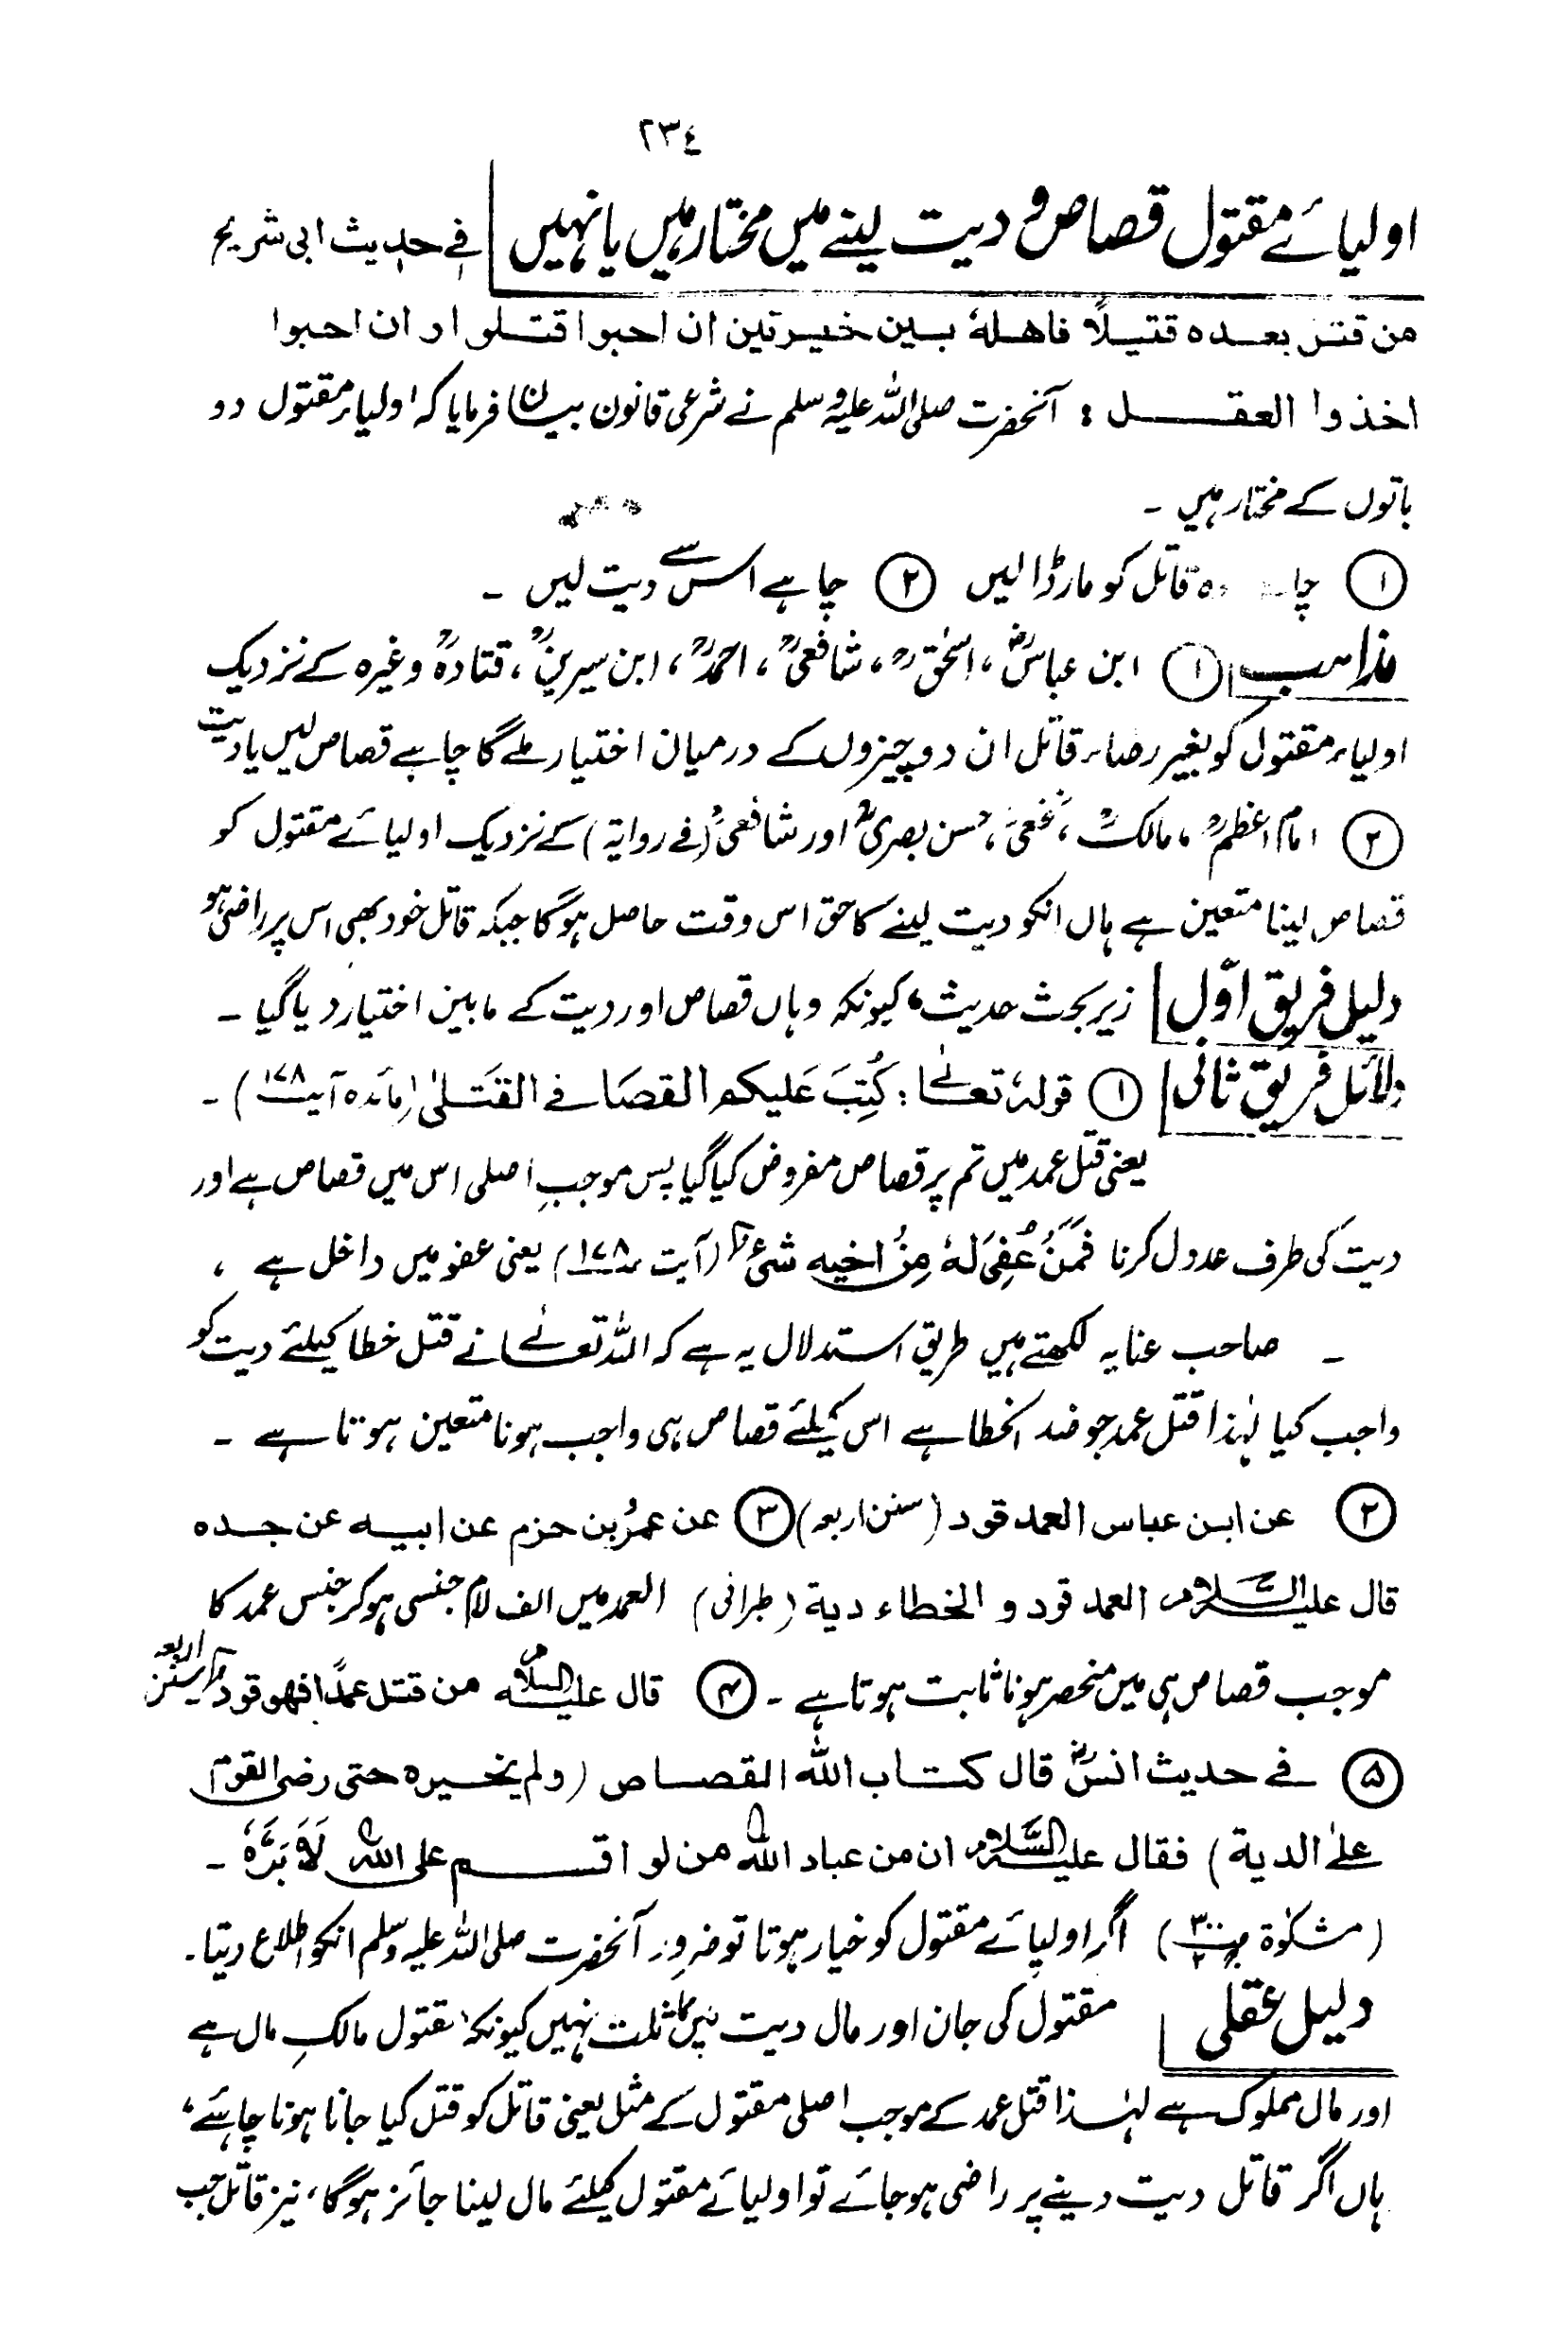 ٢٣٤
اولیائے مقتول قصاص و دیت لینے میں مختار ہیں یا نہیں فے حدیث ابی شریح
من قتل بعدہ قتیلًا فاھلہٗ بین خیرتین ان احبوا قتلوا و ان احبوا
اخذوا العقل : آنحضرت صلی اللہ علیہ وسلم نے شرعی قانون بیان فرمایا کہ اولیاء مقتول دو
باتوں کے مختار ہیں ۔
① چاہے وہ قاتل کو مار ڈالیں ② چاہے اس سے دیت لیں ۔
مذاہب ① ابن عباسؓ ، اسحٰقؒ ، شافعیؒ ، احمدؒ ، ابن سیرینؒ ، قتادہؒ وغیرہ کے نزدیک
اولیاء مقتول کو بغیر رضاء قاتل ان دو چیزوں کے درمیان اختیار ملے گا چاہے قصاص لیں یا دیت
② امام اعظمؒ ، مالکؒ ، نخعیؒ ، حسن بصریؒ اور شافعیؒ (فے روایۃ) کے نزدیک اولیائے مقتول کو
قصاص لینا متعین ہے ہاں انکو دیت لینے کا حق اس وقت حاصل ہوگا جبکہ قاتل خود بھی اس پر راضی ہو
دلیل فریق اوّل زیر بحث حدیث ، کیونکہ وہاں قصاص اور دیت کے مابین اختیار دیا گیا ۔
دلائل فریق ثانی ① قولہٗ تعالےٰ : کُتِبَ عَلیکم القصَا فے القَتلیٰ (مائدہ آیت ١٧٨) ۔
یعنی قتل عمد میں تم پر قصاص مفروض کیا گیا پس موجبِ اصلی اس میں قصاص ہے اور
دیت کی طرف عدول کرنا فَمَنْ عُفِیَ لہٗ مِنْ اخیہ شیءٌ (آیت ١٧٨) یعنی عفو میں داخل ہے ،
۔ صاحب عنایہ لکھتے ہیں طریق استدلال یہ ہے کہ اللہ تعالےٰ نے قتل خطا کیلئے دیت کو
واجب کیا لہٰذا قتل عمد جو ضد الخطا ہے اس کیلئے قصاص ہی واجب ہونا متعین ہوتا ہے ۔
② عن ابن عباس العمد قود (سنن اربعہ) ③ عن عمرُ بن حزم عن ابیہ عن جدہ
قال علیہ السلام العمد قود و الخطاء دیۃ (طبرانی) العمد میں الف لام جنسی ہوکر جنس عمد کا
موجب قصاص ہی میں منحصر ہونا ثابت ہوتا ہے ۔ ④ قال علیہ السلام من قتل عمدًا فھو قود سنن اربعہ
⑤ فے حدیث انسؓ قال کتاب اللہ القصاص (ولم یخیرہ حتی رضی القوم
علےٰ الدیۃ) فقال علیہ السلام ان من عباد اللہ من لو اقسم علی اللہ لَاَبَرَّہٗ ۔
(مشکوٰۃ ص ٣٠٠ / ٢) اگر اولیائے مقتول کو خیار ہوتا تو ضرور آنحضرت صلی اللہ علیہ وسلم انکو اطلاع دیتا ۔
دلیل عقلی مقتول کی جان اور مال دیت میں مماثلت نہیں کیونکہ مقتول مالکِ مال ہے
اور مال مملوک ہے لہٰذا قتل عمد کے موجب اصلی مقتول کے مثل یعنی قاتل کو قتل کیا جانا ہونا چاہئے ،
ہاں اگر قاتل دیت دینے پر راضی ہوجائے تو اولیائے مقتول کیلئے مال لینا جائز ہوگا ، نیز قاتل جب